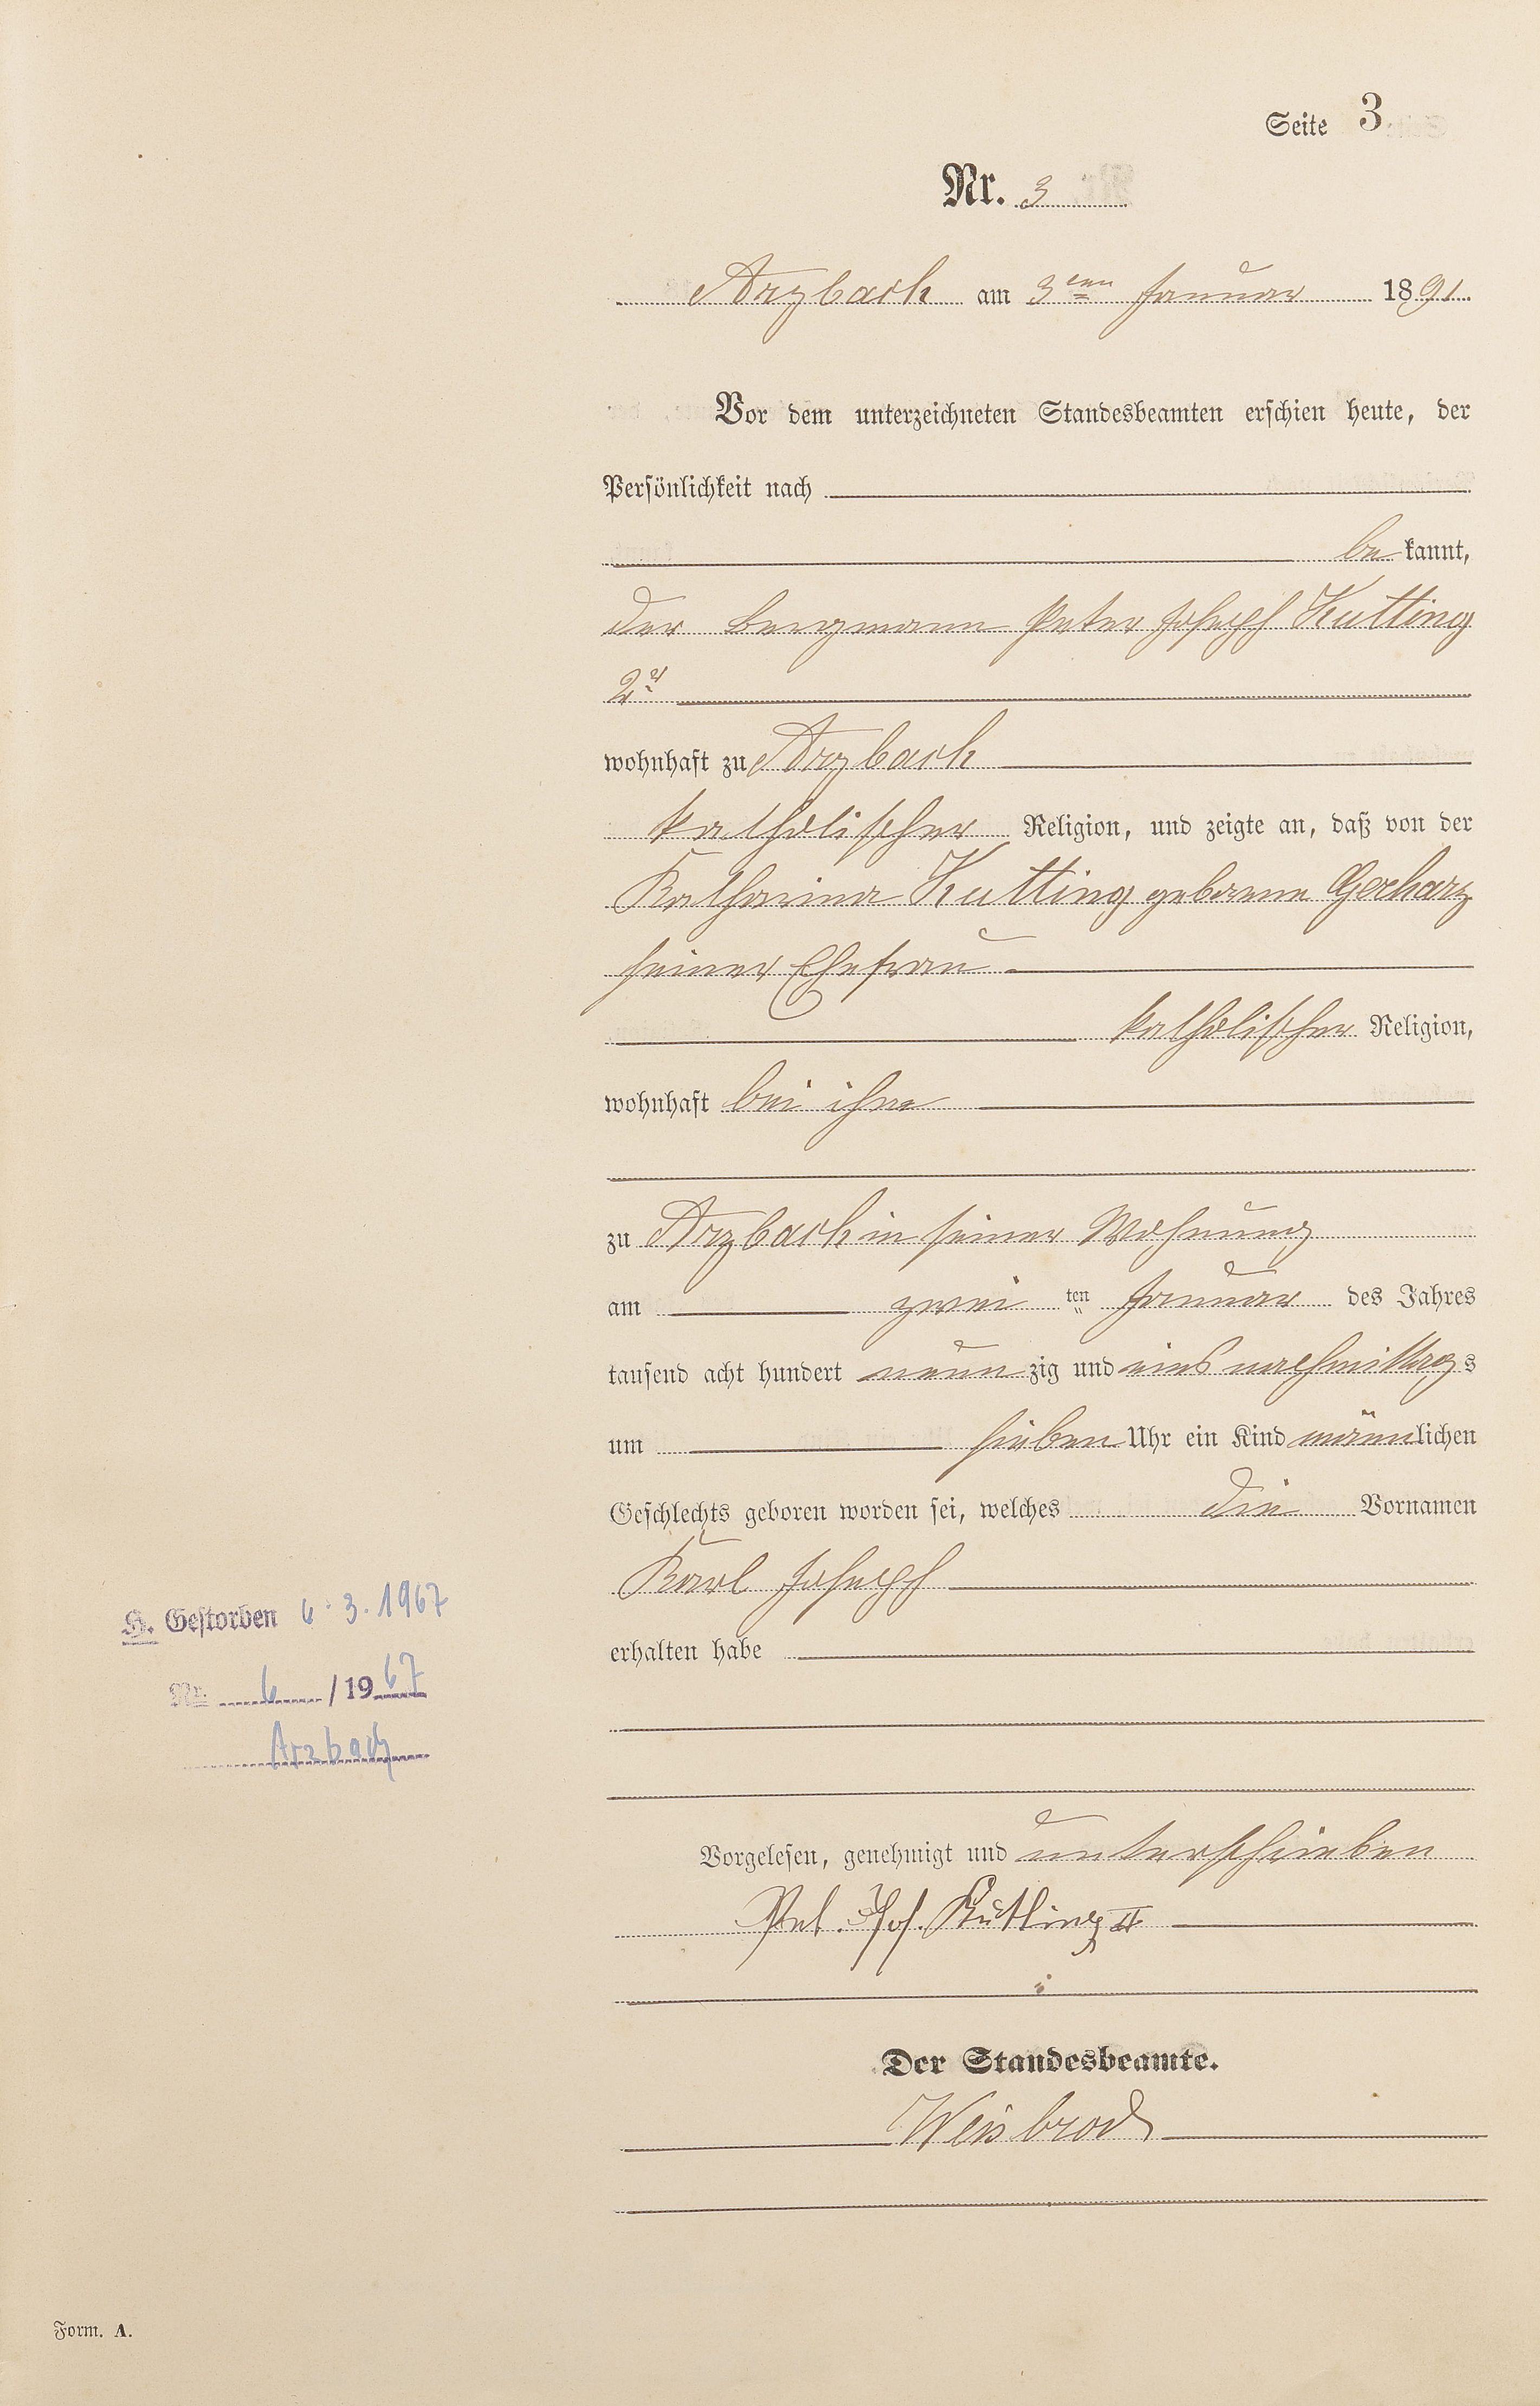 Seite 3
Nr. 3
Arzbach am 3ten Januar 1891.
Vor dem unterzeichneten Standesbeamten erschien heute, der
Persönlichkeit nach
bekannt,
der Bergmann Peter Joseph Kutting
2r
wohnhaft zu Arzbach
katholischer Religion, und zeigte an, daß von der
Katharina Kutting geborene Gerharz
seiner Ehefrau
katholischer Religion,
wohnhaft bei ihm
zu Arzbach in seiner Wohnung
am zwei ten Januar des Jahres
tausend acht hundert neunzig und eins nachmittags
um sieben Uhr ein Kind männlichen
Geschlechts geboren worden sei, welches die Vornamen
Karl Joseph
erhalten habe
H. Gestorben 6.3.1967
Nr. 6 / 1967
Arzbach
Vorgelesen, genehmigt und unterschrieben
Pet. Jos. Kutting II
Der Standesbeamte.
Weisbrod
Form. A.